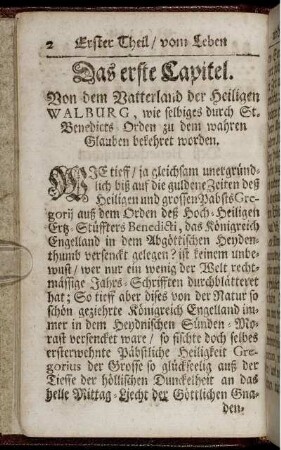 2 Erster Theil / vom Leben
Das erste Capitel.
Von dem Vatterland der Heiligen
WALBURG, wie selbiges durch St.
Benedicts-Orden zu dem wahren
Glauben bekehret worden.
WIE tieff / ja gleichsam unergründ-
lich biß auf die guldene Zeiten deß
Heiligen und grossen Pabsts Gre-
gorij auß dem Orden deß Hoch-Heiligen
Ertz-Stüffters Benedicti, das Königreich
Engelland in dem Abgöttischen Heyden-
thumb versenckt gelegen? ist keinem unbe-
wust / wer nur ein wenig der Welt recht-
mässige Jahrs-Schrifften durchblätteret
hat; So tieff aber dises von der Natur so
schön geziehrte Königreich Engelland im-
mer in dem Heydnischen Sünden-Mo-
rast versencket ware / so fischte doch selbes
ersterwehnte Päbstliche Heiligkeit Gre-
gorius der Grosse so glückseelig auß der
Tieffe der höllischen Dunckelheit an das
helle Mittag-Liecht der Göttlichen Gna-
den-